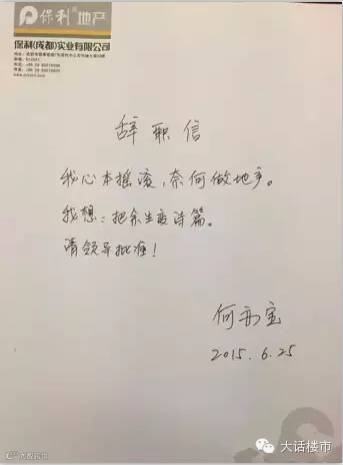 保利地产
保利(成都)实业有限公司
辞职信
我心本摇滚，奈何做地产。
我想：把余生变诗篇。
请领导批准！
2015.6.25
大话楼市